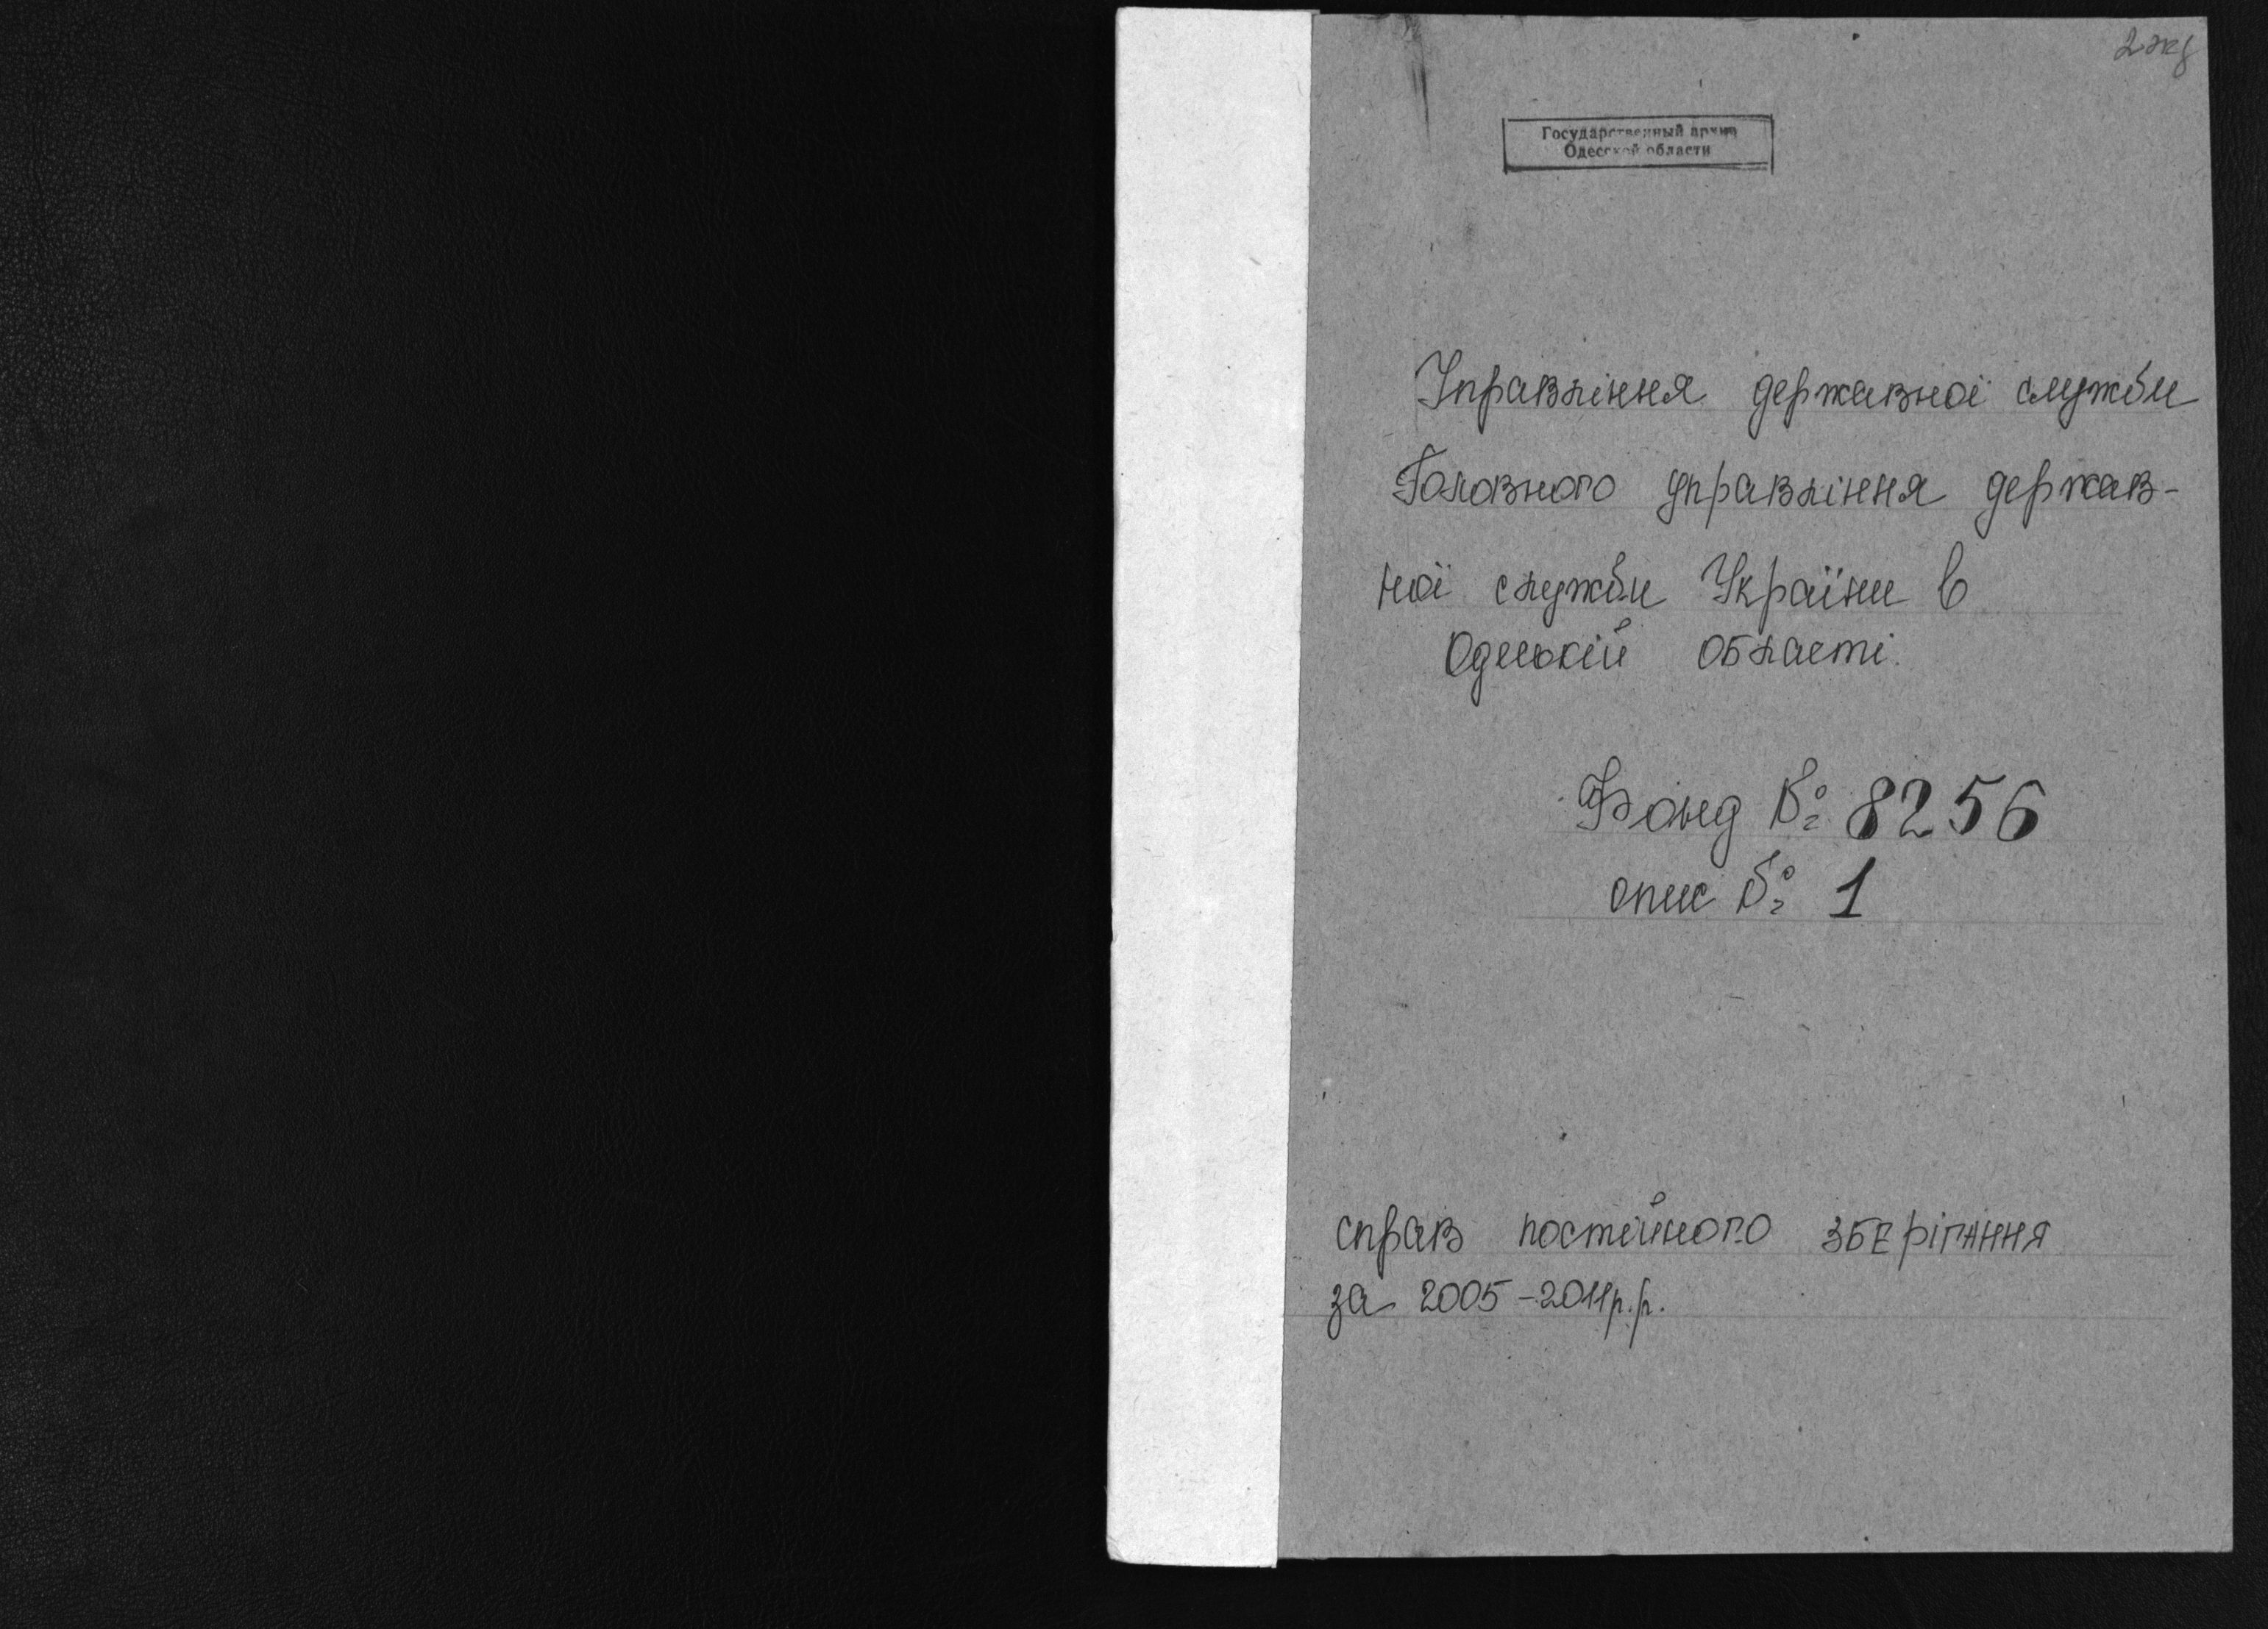 2 экз
Государственный архив
Одесской области
Управління державної служби
Головного управління держав-
ної служби України в
Одеській області.
Фонд № 8256
опис № 1
справ постійного зберігання
за 2005-2011р.р.